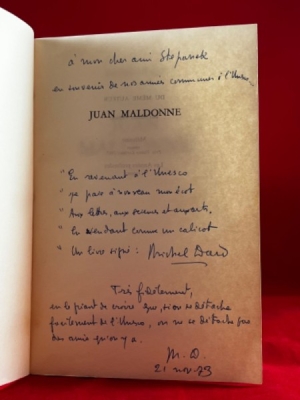 à mon cher ami Stepanek
en souvenir de nos années communes à l'Unesco
JUAN MALDONNE
"En revenant à l'Unesco
"je paie à nouveau mon écot
"Aux lettres, aux sciences et aux arts,
"En vendant comme un calicot
"Un livre signé : Michel Dard
Très fidèlement,
en le priant de croire que, si on se détache
facilement de l'Unesco, on ne se détache pas
des amis qu'on y a.
M. D.
21 nov. 73